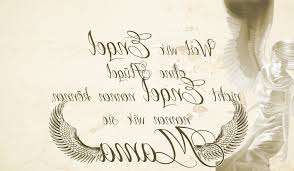 Weil wir Engel
ohne Flügel
nicht Engel nennen können
nennen wir sie
Mama